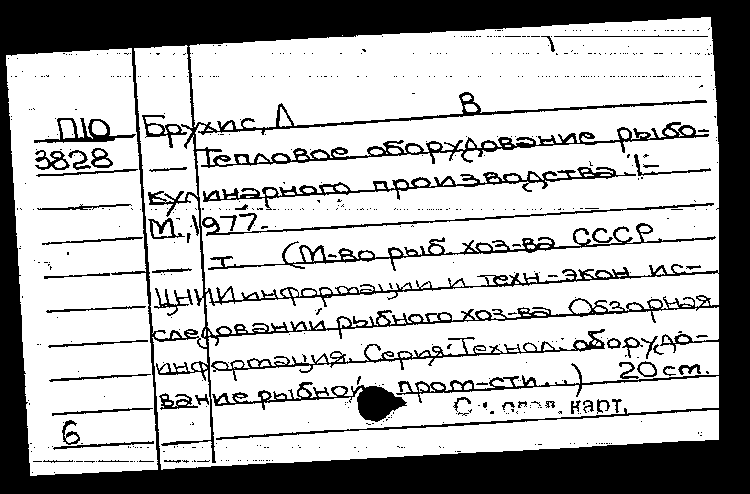 В
П10 Брухис, Л
3828 Тепловое оборудование рыбо-
кулинарного производства. 1-
М., 1977-
т. (М-во рыб хоз-ва СССР.
ЦНИИинформации и техн.-экон ис-
следований рыбного хоз-ва. Обзорная
информация. Серия: Технол. оборудо-
вание рыбной пром-сти...) 20 cm.
карт.
6